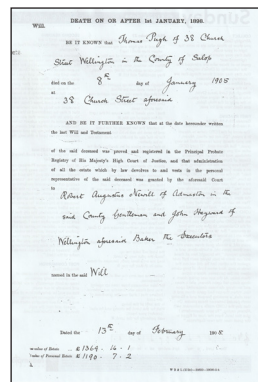 DEATH ON OR AFTER 1st JANUARY, 1898.
Will.
BE IT KNOWN that Thomas Pugh of 38 Church
Street Wellington in the County of Salop
died on the 8th day of January 1908
at
38 Church Street aforesaid
AND BE IT FURTHER KNOWN that at the date hereunder written
the last Will and Testament
of the said deceased was proved and registered in the Principal Probate
Registry of His Majesty's High Court of Justice, and that administration
of all the estate which by law devolves to and vests in the personal
representative of the said deceased was granted by the aforesaid Court
to
Robert Augustus Newill of Admaston in the
said County Gentleman and John Hayward of
Wellington aforesaid Baker the Executors
named in the said Will
Dated the 13th day of February 1908
value of Estate £1369 . 16 . 1
value of Personal Estate £1190 . 7 . 2